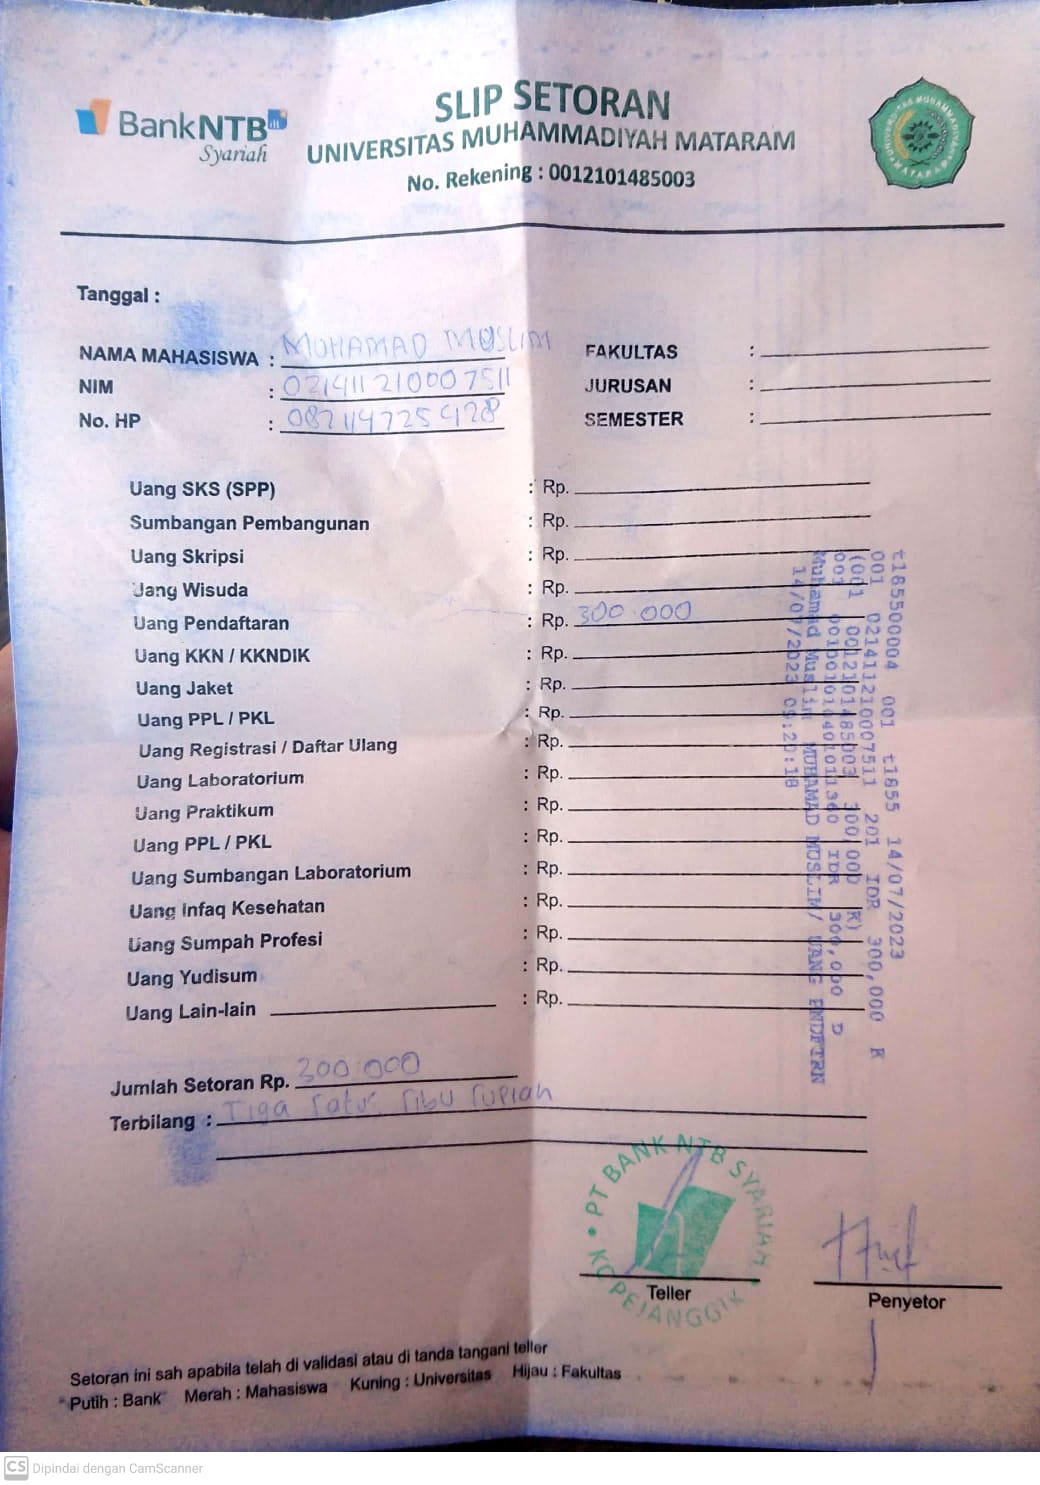 BankNTB
Syariah
SLIP SETORAN
UNIVERSITAS MUHAMMADIYAH MATARAM
No. Rekening : 0012101485003
UNIVERSITAS MUHAMMADIYAH MATARAM
Tanggal :
NAMA MAHASISWA : MUHAMAD MUSLIM
NIM : 021411210007511
No. HP : 082114725428
FAKULTAS :
JURUSAN :
SEMESTER :
Uang SKS (SPP) : Rp.
Sumbangan Pembangunan : Rp.
Uang Skripsi : Rp.
Uang Wisuda : Rp.
Uang Pendaftaran : Rp. 300.000
Uang KKN / KKNDIK : Rp.
Uang Jaket : Rp.
Uang PPL / PKL : Rp.
Uang Registrasi / Daftar Ulang : Rp.
Uang Laboratorium : Rp.
Uang Praktikum : Rp.
Uang PPL / PKL : Rp.
Uang Sumbangan Laboratorium : Rp.
Uang Infaq Kesehatan : Rp.
Uang Sumpah Profesi : Rp.
Uang Yudisum : Rp.
Uang Lain-lain : Rp.
t185500004 001 t1855 14/07/2023
001 021411210007511 201 IDR 300,000 K
(001 0012101485003 300,000 K)
001 IDR 300,000 D
Muhamad Muslim MUHAMAD MUSLIM/ UANG PNDFTRN
14/07/2023 09:20:18
Jumlah Setoran Rp. 300.000
Terbilang : Tiga ratus ribu rupiah
PT BANK NTB SYARIAH
KC PEJANGGIK
Teller
Penyetor
Setoran ini sah apabila telah di validasi atau di tanda tangani teller
Putih : Bank Merah : Mahasiswa Kuning : Universitas Hijau : Fakultas
CS Dipindai dengan CamScanner